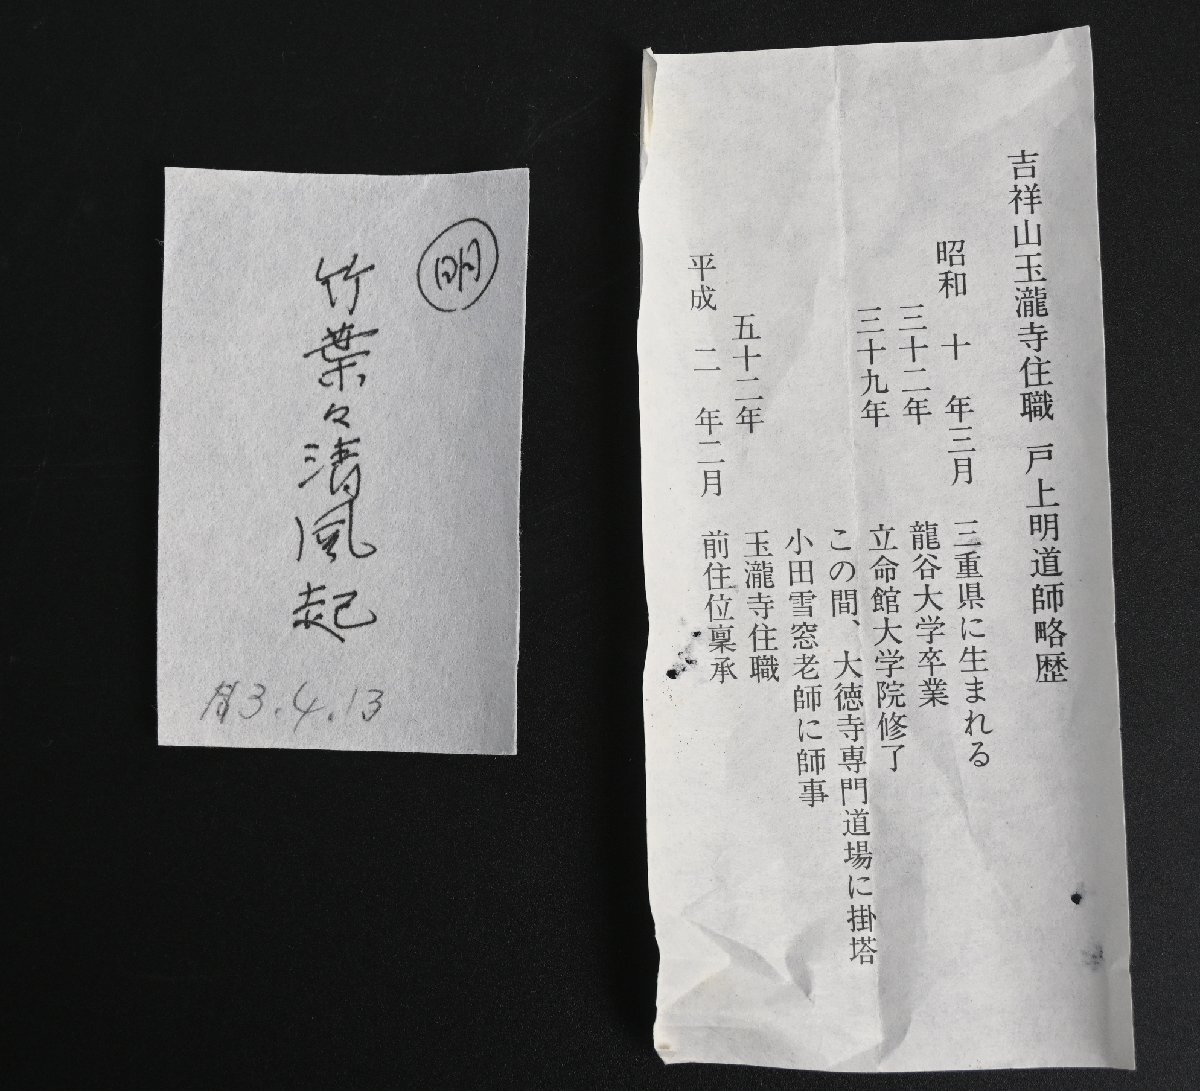 吉祥山玉瀧寺住職 戸上明道師略歴
昭和 十 年三月 三重県に生まれる
三十二年 龍谷大学卒業
三十九年 立命館大学院修了
この間、大徳寺専門道場に掛塔
小田雪窓老師に師事
五十二年 玉瀧寺住職
平成 二 年二月 前住位稟承
明
竹葉々清風起
3.4.13